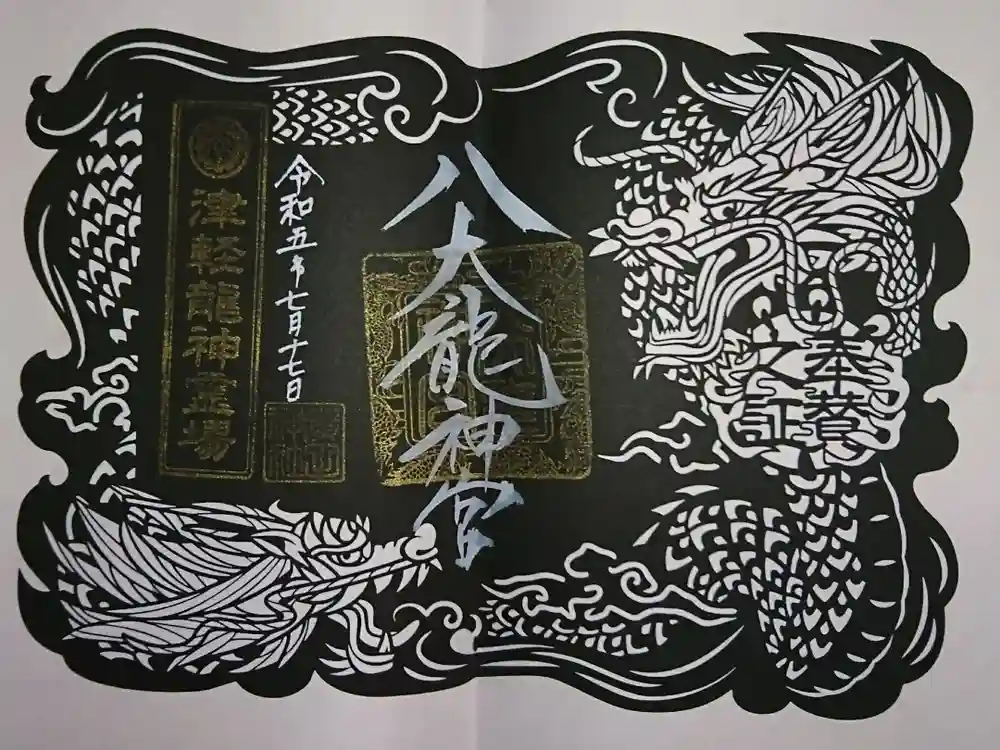 奉誉
之証
八大龍神宮
令和五年七月十七日
津軽龍神霊場